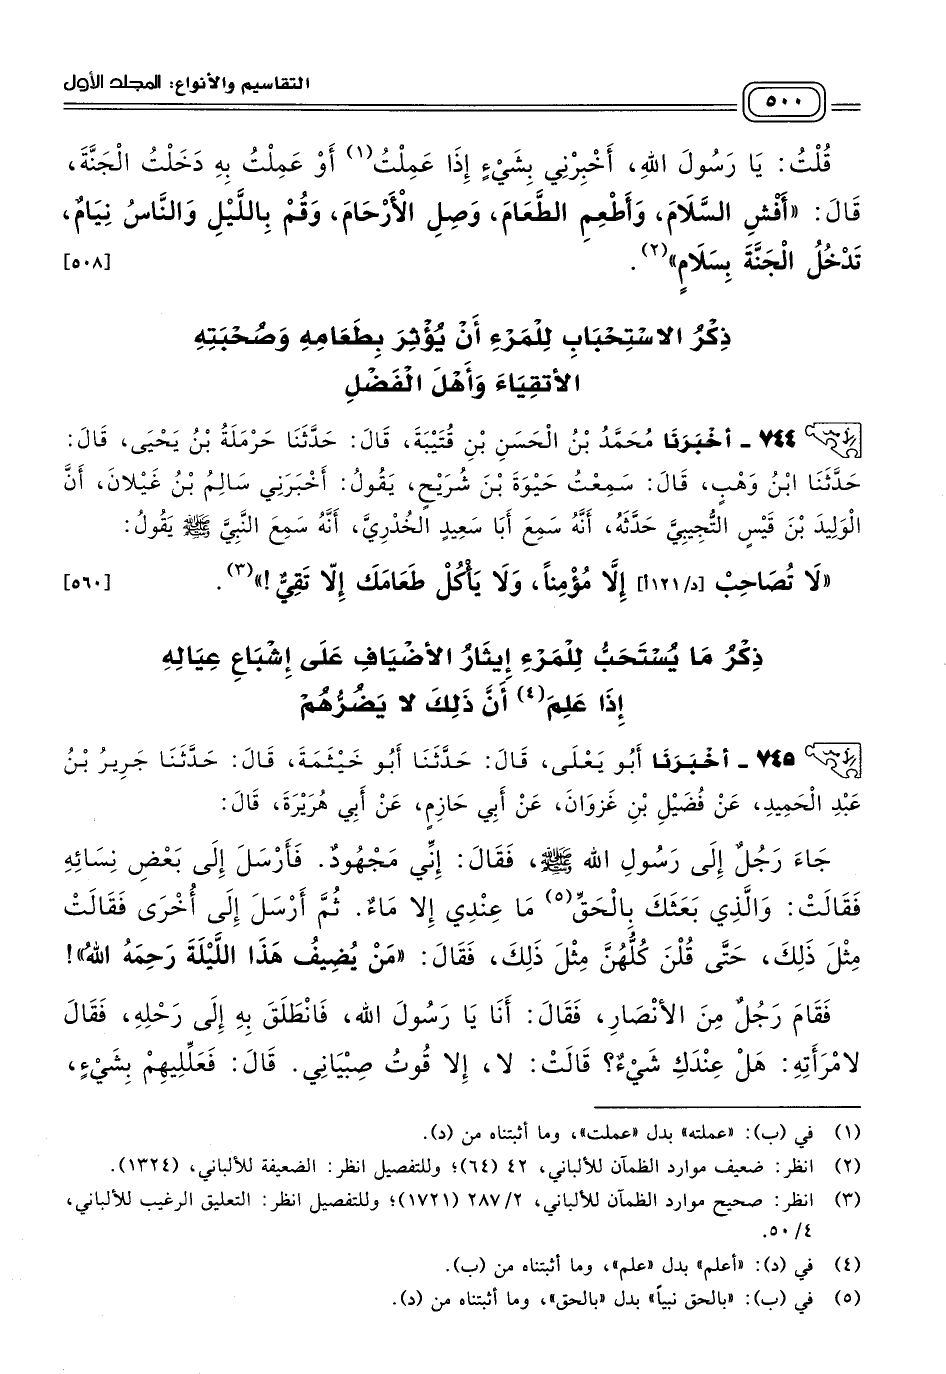 ٥٠٠
التقاسيم والأنواع: المجلد الأول
قُلْتُ: يَا رَسُولَ اللهِ، أَخْبِرْنِي بِشَيْءٍ إِذَا عَمِلْتُ(١) أَوْ عَمِلْتُ بِهِ دَخَلْتُ الْجَنَّةَ،
قَالَ: «أَفْشِ السَّلَامَ، وَأَطْعِمِ الطَّعَامَ، وَصِلِ الْأَرْحَامَ، وَقُمْ بِاللَّيْلِ وَالنَّاسُ نِيَامٌ،
تَدْخُلُ الْجَنَّةَ بِسَلَامٍ»(٢). [٥٠٨]
ذِكْرُ الاسْتِحْبَابِ لِلْمَرْءِ أَنْ يُؤْثِرَ بِطَعَامِهِ وَصُحْبَتِهِ
الأَتقِيَاءَ وَأَهْلَ الْفَضْلِ
٧٤٤ - أَخْبَرَنَا مُحَمَّدُ بْنُ الْحَسَنِ بْنِ قُتَيْبَةَ، قَالَ: حَدَّثَنَا حَرْمَلَةُ بْنُ يَحْيَى، قَالَ:
حَدَّثَنَا ابْنُ وَهْبٍ، قَالَ: سَمِعْتُ حَيْوَةَ بْنَ شُرَيْحٍ، يَقُولُ: أَخْبَرَنِي سَالِمُ بْنُ غَيْلَانَ، أَنَّ
الْوَلِيدَ بْنَ قَيْسٍ التُّجِيبِيَّ حَدَّثَهُ، أَنَّهُ سَمِعَ أَبَا سَعِيدٍ الْخُدْرِيَّ، أَنَّهُ سَمِعَ النَّبِيَّ ﷺ يَقُولُ:
«لَا تُصَاحِبْ [د/١٢١أ] إِلَّا مُؤْمِناً، وَلَا يَأْكُلْ طَعَامَكَ إِلّا تَقِيٌّ!»(٣). [٥٦٠]
ذِكْرُ مَا يُسْتَحَبُّ لِلْمَرْءِ إِيثَارُ الأَضْيَافِ عَلَى إِشْبَاعِ عِيَالِهِ
إِذَا عَلِمَ(٤) أَنَّ ذَلِكَ لا يَضُرُّهُمْ
٧٤٥ - أَخْبَرَنَا أَبُو يَعْلَى، قَالَ: حَدَّثَنَا أَبُو خَيْثَمَةَ، قَالَ: حَدَّثَنَا جَرِيرُ بْنُ
عَبْدِ الْحَمِيدِ، عَنْ فُضَيْلِ بْنِ غَزوَانَ، عَنْ أَبِي حَازِمٍ، عَنْ أَبِي هُرَيْرَةَ، قَالَ:
جَاءَ رَجُلٌ إِلَى رَسُولِ الله ﷺ، فَقَالَ: إِنِّي مَجْهُودٌ. فَأَرْسَلَ إِلَى بَعْضِ نِسَائِهِ
فَقَالَتْ: وَالَّذِي بَعَثَكَ بِالْحَقِّ(٥) مَا عِنْدِي إِلا مَاءٌ. ثُمَّ أَرْسَلَ إِلَى أُخْرَى فَقَالَتْ
مِثْلَ ذَلِكَ، حَتَّى قُلْنَ كُلُّهُنَّ مِثْلَ ذَلِكَ، فَقَالَ: «مَنْ يُضِيفُ هَذَا اللَّيْلَةَ رَحِمَهُ اللهُ»!
فَقَامَ رَجُلٌ مِنَ الأَنْصَارِ، فَقَالَ: أَنَا يَا رَسُولَ الله، فَانْطَلَقَ بِهِ إِلَى رَحْلِهِ، فَقَالَ
لامْرَأَتِهِ: هَلْ عِنْدَكِ شَيْءٌ؟ قَالَتْ: لا، إِلا قُوتُ صِبْيَانِي. قَالَ: فَعَلِّلِيهِمْ بِشَيْءٍ،
(١) في (ب): «عملته» بدل «عملت»، وما أثبتناه من (د).
(٢) انظر: ضعيف موارد الظمآن للألباني، ٤٢ (٦٤)؛ وللتفصيل انظر: الضعيفة للألباني، (١٣٢٤).
(٣) انظر: صحيح موارد الظمآن للألباني، ٢/ ٢٨٧ (١٧٢١)؛ وللتفصيل انظر: التعليق الرغيب للألباني،
٤/ ٥٠.
(٤) في (د): «أعلم» بدل «علم»، وما أثبتناه من (ب).
(٥) في (ب): «بالحق نبياً» بدل «بالحق»، وما أثبتناه من (د).